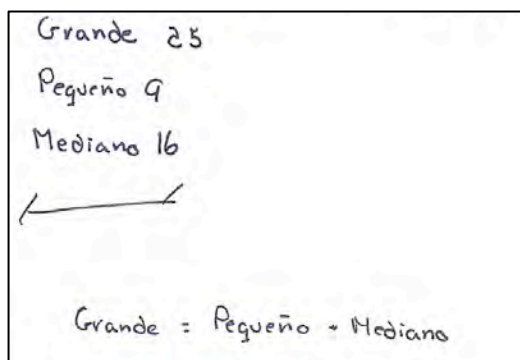 Grande 25
Pequeño 9
Mediano 16
Grande = Pequeño + Mediano